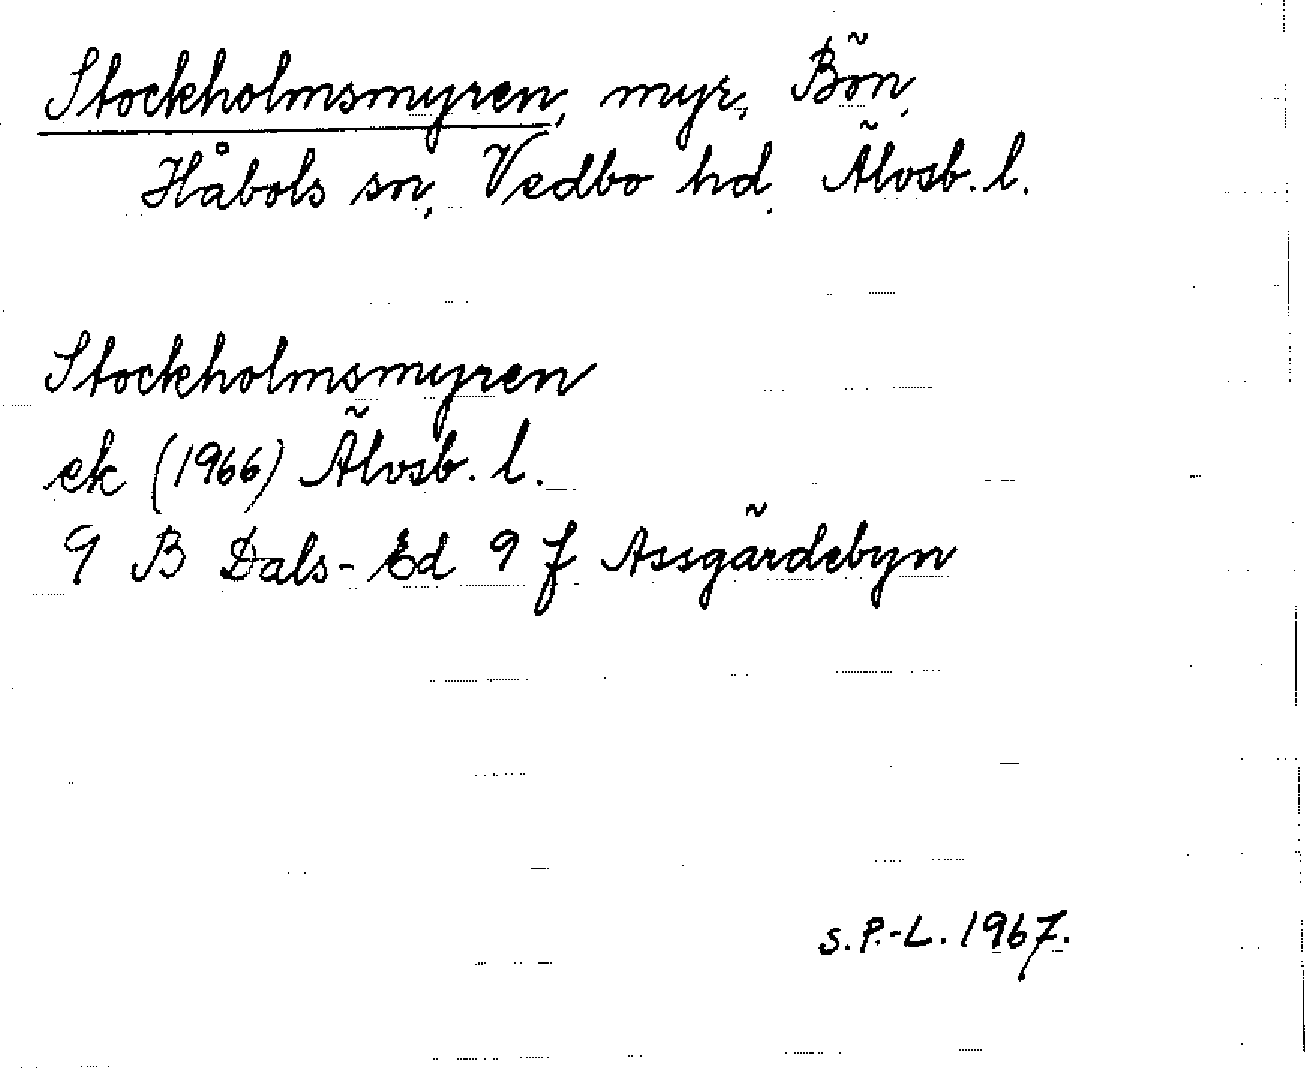 Stockholmsmyren, myr, Bön,
Håbols sn, Vedbo hd, Älvsb. l.
Stockholmsmyren
ek (1966) Älvsb. l.
9 B Dals-Ed 9 f Assgärdebyn
S. P.-L. 1967.